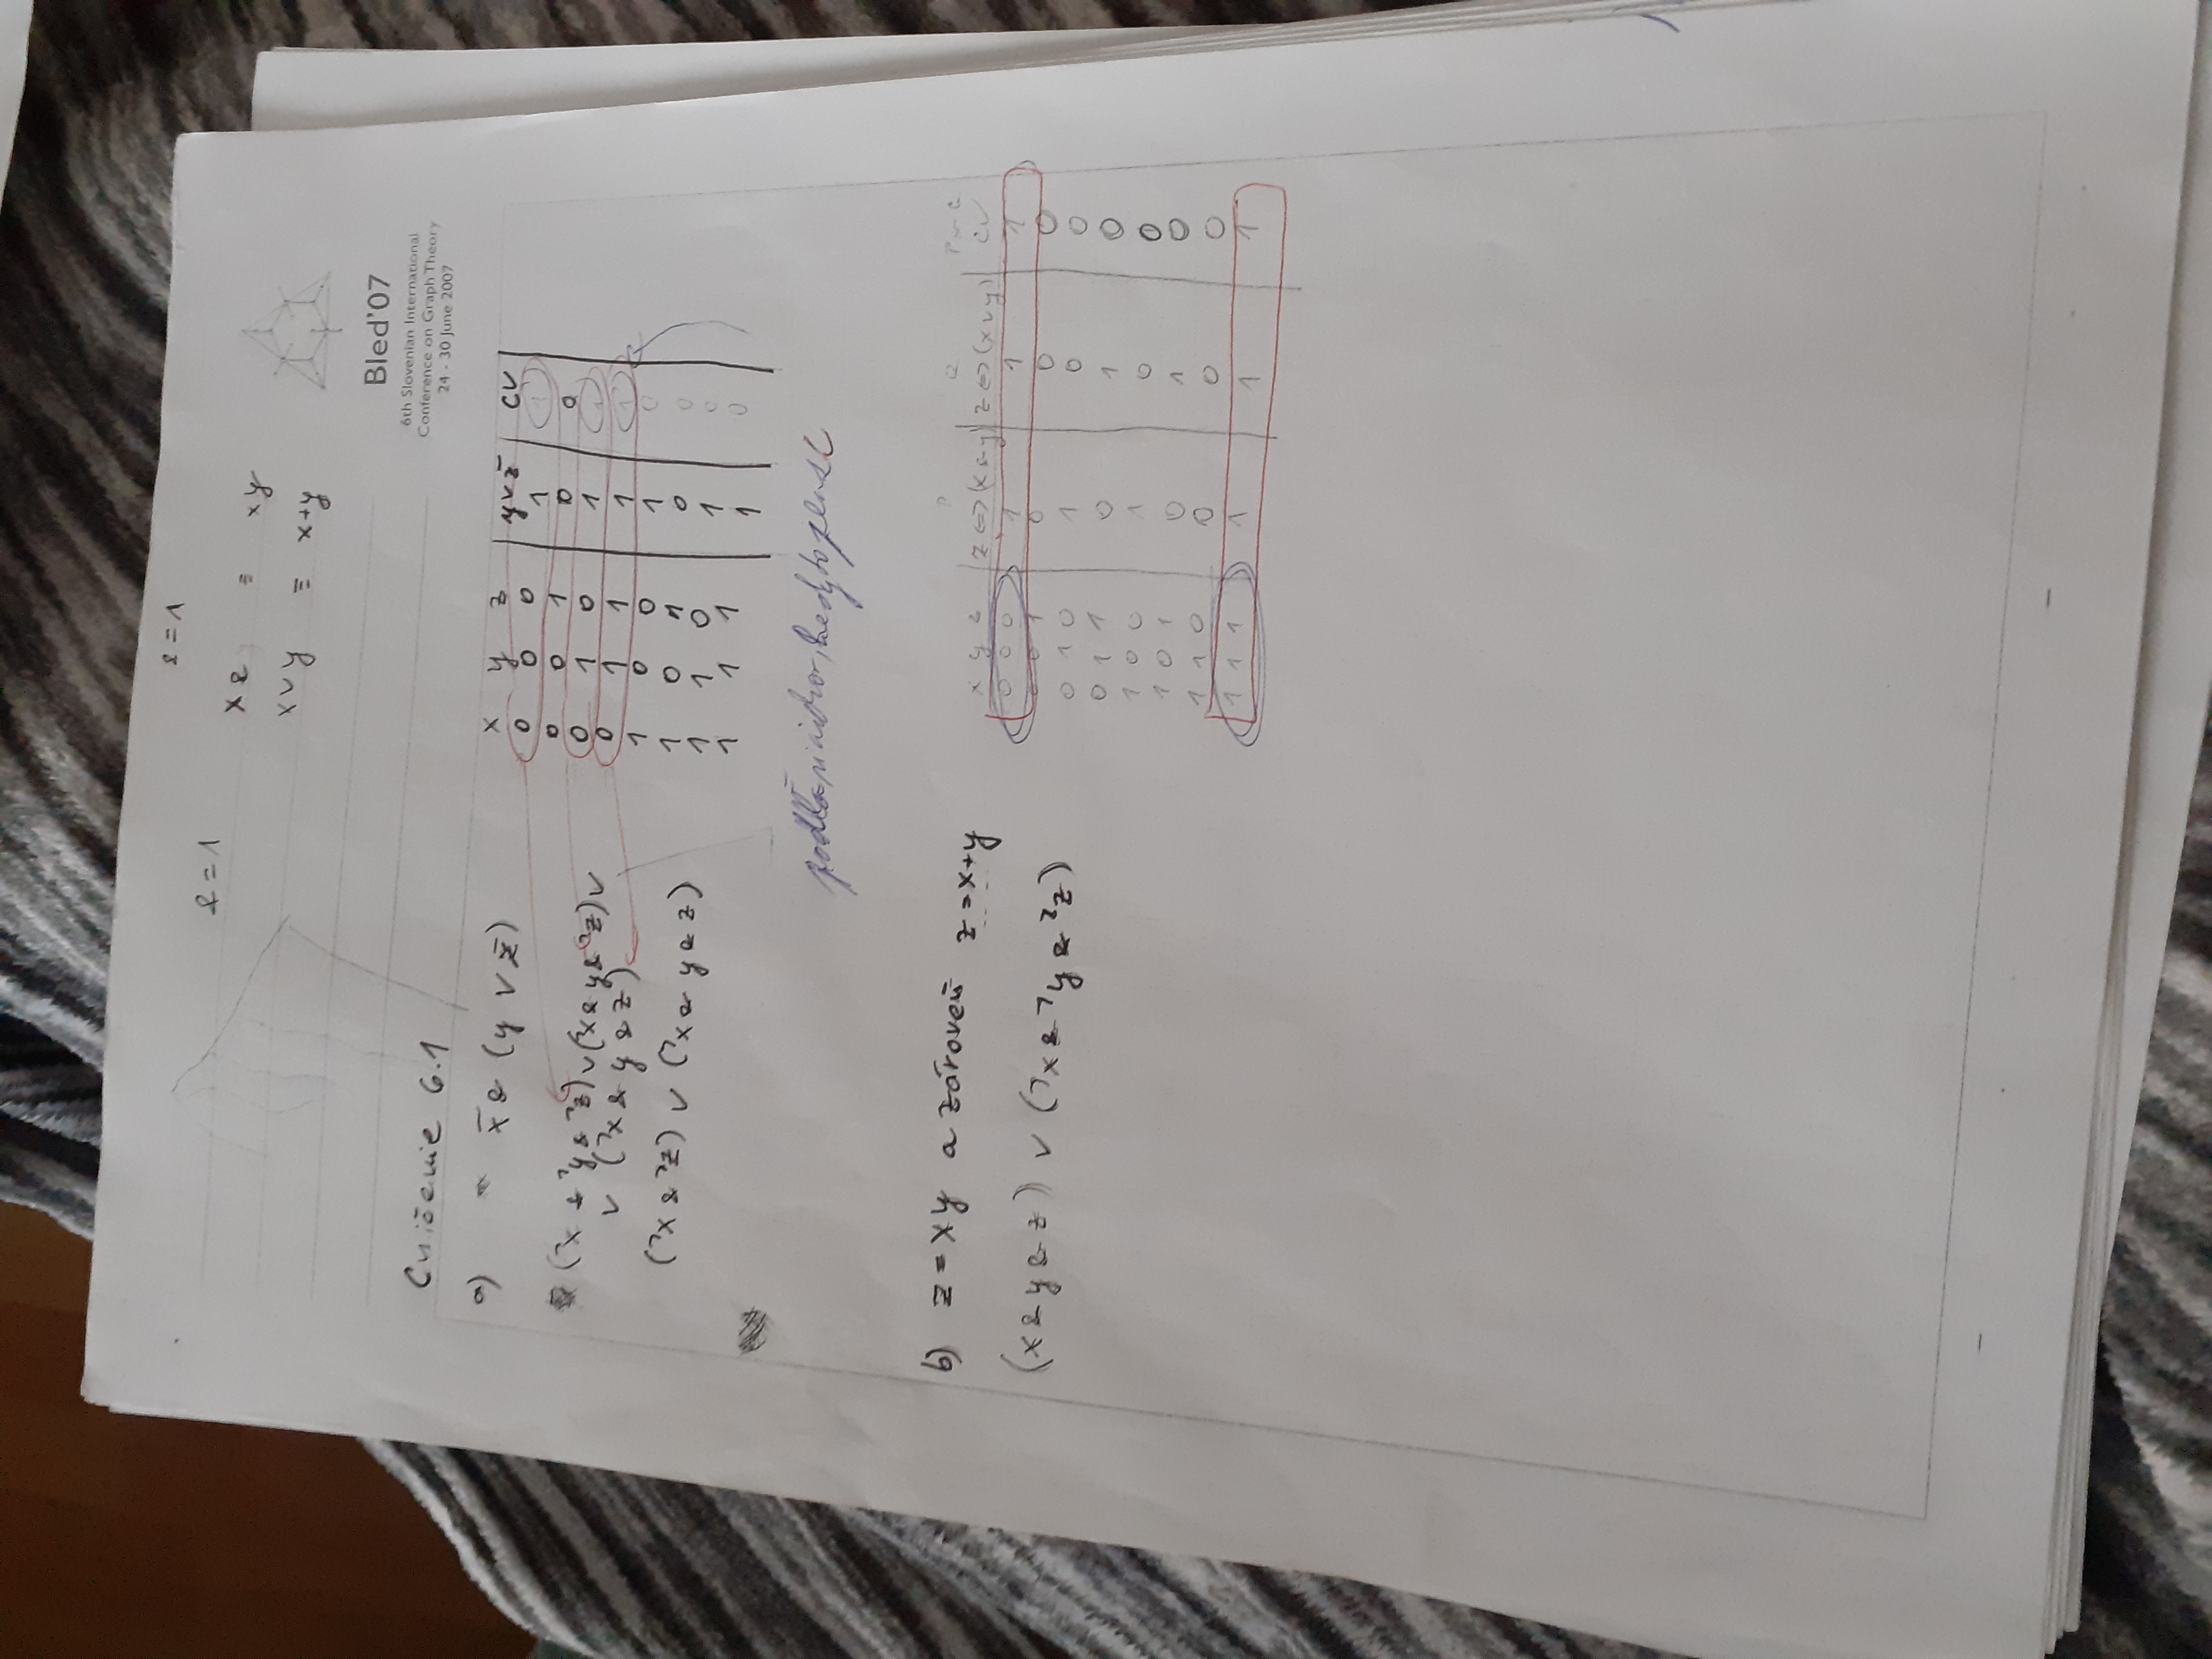 & = 1
& = 1
x & ≡ xy
x ∨ y ≡ x+y
Bled'07
6th Slovenian International
Conference on Graph Theory
24 - 30 June 2007
Cvičenie 6.1
a) x̄ & (y ∨ z̄)
(¬x & ¬y & ¬z) ∨ (¬x & y & ¬z) ∨
∨ (¬x & y & z)
(¬x & ¬z) ∨ (¬x & y & z)
x y z y∨z̄ CV
0 0 0 1 1
0 0 1 0 0
0 1 0 1 1
0 1 1 1 1
1 0 0 1 0
1 0 1 0 0
1 1 0 1 0
1 1 1 1 0
b) z = xy a zároveň z = x+y
(x & y & z) ∨ (¬x & ¬y & ¬z)
x y z z <=> (x & y) z <=> (x ∨ y) CV
0 0 0 1 1 1
0 0 1 0 0 0
0 1 0 1 0 0
0 1 1 0 1 0
1 0 0 1 0 0
1 0 1 0 1 0
1 1 0 0 0 0
1 1 1 1 1 1